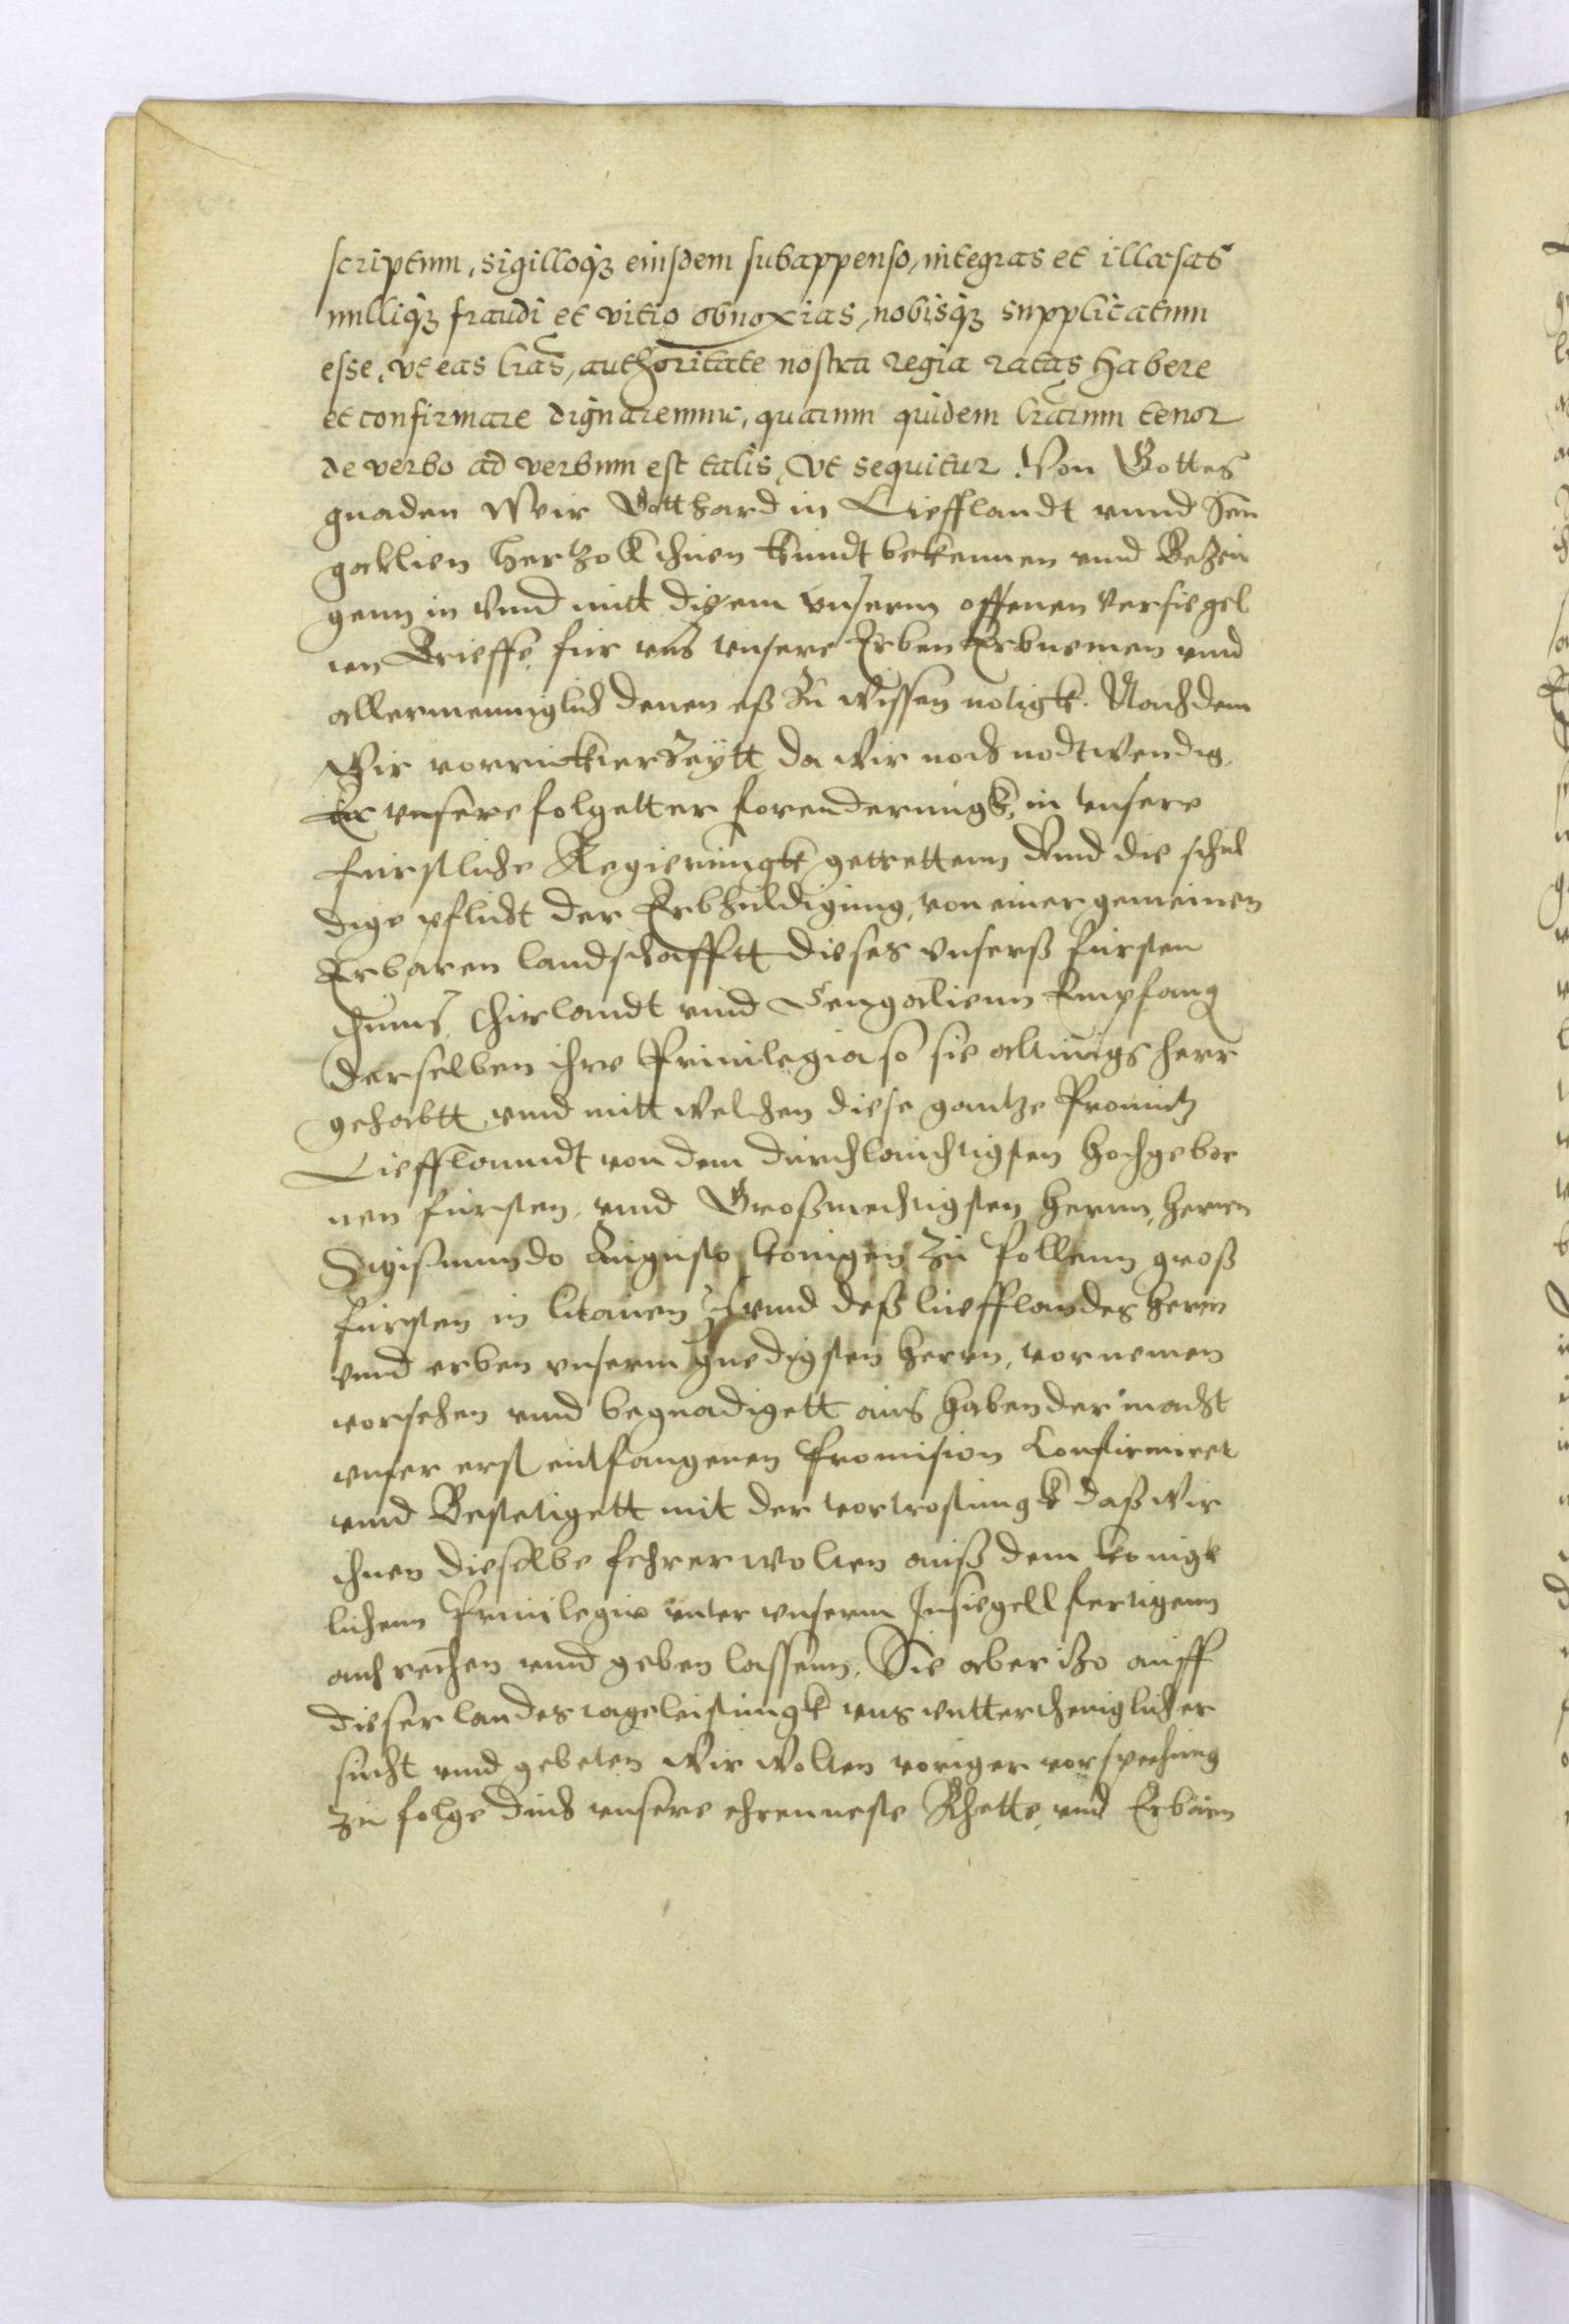 scriptum, sigilloq́ꝫ eiusdem subappenso, integras et illæsas
nulliq́ꝫ fraudi et vitio obnoxias, nobisq́ꝫ supplicatum
esse, vt eas l̃ras, authoritate nostra regia ratas habere
et confirmare dignaremur, quarum quidem l̃rarum tenor
de verbo ad verbum est talis, vt sequitur. Von Gottes
gnaden Wir Gotthard in Liefflandt vnnd Sem
gallien Hertzo thuen kundt bekennen vnd Bezeu
genn in vnd mitt disem vnserm offenen versiegel
ten Brieffe, fur vns vnsere Erben Erbnemen vnd
allermenniglich denen eß zu wissen notigk. Nachdem
Wir vorruckter Zeytt da wir noch nodtwendig,
vnsere folgetter forenderungk, in vnsere
furstliche Regierungk getrettenn Vnd die schul
dige pflicht der Erbhuldigung, von einer gemeinen
Erbaren landschafftt dieses vnserß fursten
thums, Churlandt vnd Semgallienn Empfang
derselben ihre Priuilegia so sie altings herr
gehabtt, vnd mitt welchen diese gantze Prouintz
Liefflanndt von dem durchlauchtigsten Hochgebor
nen fursten, vnd Großmechtigsten Herrn, Herren
Sigismundo Augusto konigen zu Pollenn groß
fursten in litauen vnd deß liefflandes Herrn
vnd erben vnserm gnedigsten Herrn, vornemen
vorsehen vnd begnadigett aus habender macht
vnser erst entfangenen Promision Confirmiret
vnd Bestetigett mit der vortrostungk daß wir
ihnen dieselbe fehrer wolten auß dem konigk
lichem Priuilegio vnter vnserm Insiegell fertigenn
auch rechen vnd geben lassenn. Sie aber itzo auff
dieser landes tageleistungk vns vntterthenigklich er
sucht vnd gebeten Wir wolten voriger vorsprechung
zu folge durch vnsere ehrenueste Rhette, vnd Erbarn